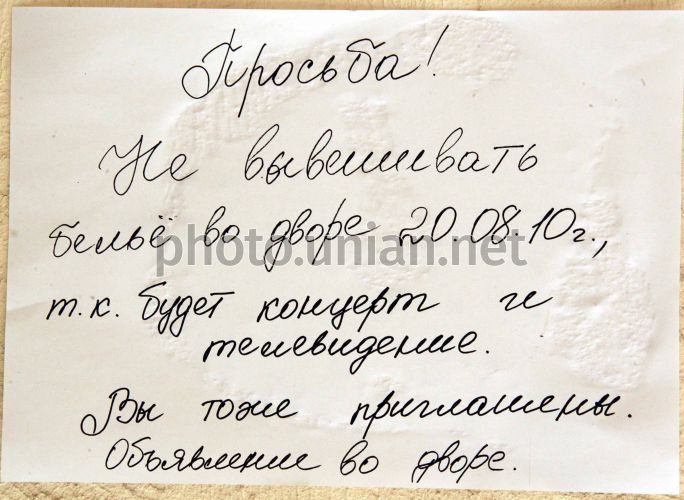 Просьба!
Не вывешивать
бельё во дворе 20.08.10г.,
photo.unian.net
т.к. будет концерт и
телевидение.
Вы тоже приглашены.
Объявление во дворе.